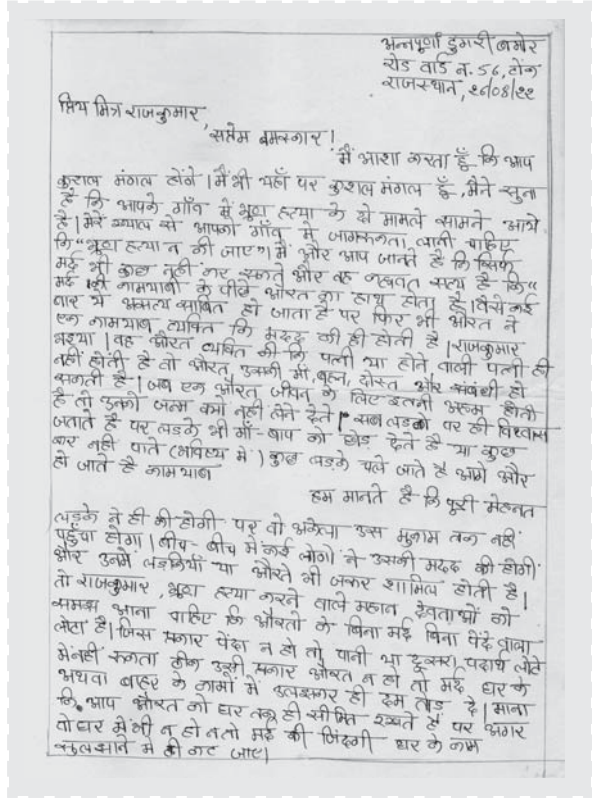 अन्नपूर्णा डुगरी बमोर
रोड वार्ड न. 56, टोंक
राजस्थान, २०/08/२२
प्रिय मित्र राजकुमार,
सप्रेम नमस्कार!
मैं आशा करता हूँ कि आप
कुशल मंगल होंगे। मैं भी यहाँ पर कुशल मंगल हूँ, मैंने सुना
है कि आपके गाँव में भ्रूण हत्या के दो मामले सामने आये
है। मेरे ख्याल से आपको गाँव में जागरूकता लानी चाहिए
कि "भ्रूण हत्या न की जाए"। मैं और आप जानते है कि सिर्फ
मर्द भी कुछ नहीं कर सकते और वह कहावत सत्य है कि "
मर्द की कामयाबी के पीछे औरत का हाथ होता है। वैसे कई
बार ये असत्य साबित हो जाता है पर फिर भी औरत ने
एक कामयाब व्यक्ति कि मदद की ही होती है। राजकुमार
भइया। वह औरत व्यक्ति की कि पत्नी या होने वाली पत्नी ही
नहीं होती है वो औरत, उसकी माँ, बहन, दोस्त और संबंधी हो
सकती है। जब एक औरत जीवन के लिए इतनी अहम होती
है तो उनको जन्म क्यों नहीं लेने देते। सब लड़को पर ही विश्वास
जताते है पर लड़के भी माँ-बाप को छोड़ देते है या कुछ
कर नहीं पाते (भविष्य में) कुछ लड़के चले जाते है आगे और
हो जाते है कामयाब
हम मानते है कि पूरी मेहनत
लड़के ने ही की होगी पर वो अकेला उस मुकाम तक नहीं
पहुँचा होगा। बीच-बीच में कई लोगों ने उसकी मदद की होगी
और उनमें लड़कियाँ या औरते भी जरूर शामिल होती है।
तो राजकुमार, भ्रूण हत्या करने वाले महान देवताओं को
समझ आना चाहिए कि औरतों के बिना मर्द बिना पेंदे वाला
लोटा है। जिस प्रकार पेंदा न हो तो पानी या दूसरा पदार्थ लोटे
में नहीं रूकता ठीक उसी प्रकार औरत न हो तो मर्द घर के
अथवा बाहर के कामों में उलझकर ही दम तोड़ दे। माना
कि आप औरत को घर तक ही सीमित रखते है पर अगर
वो घर में भी न हो न तो मर्द की जिंदगी घर के काम
सुलझाने में ही कट जाए।